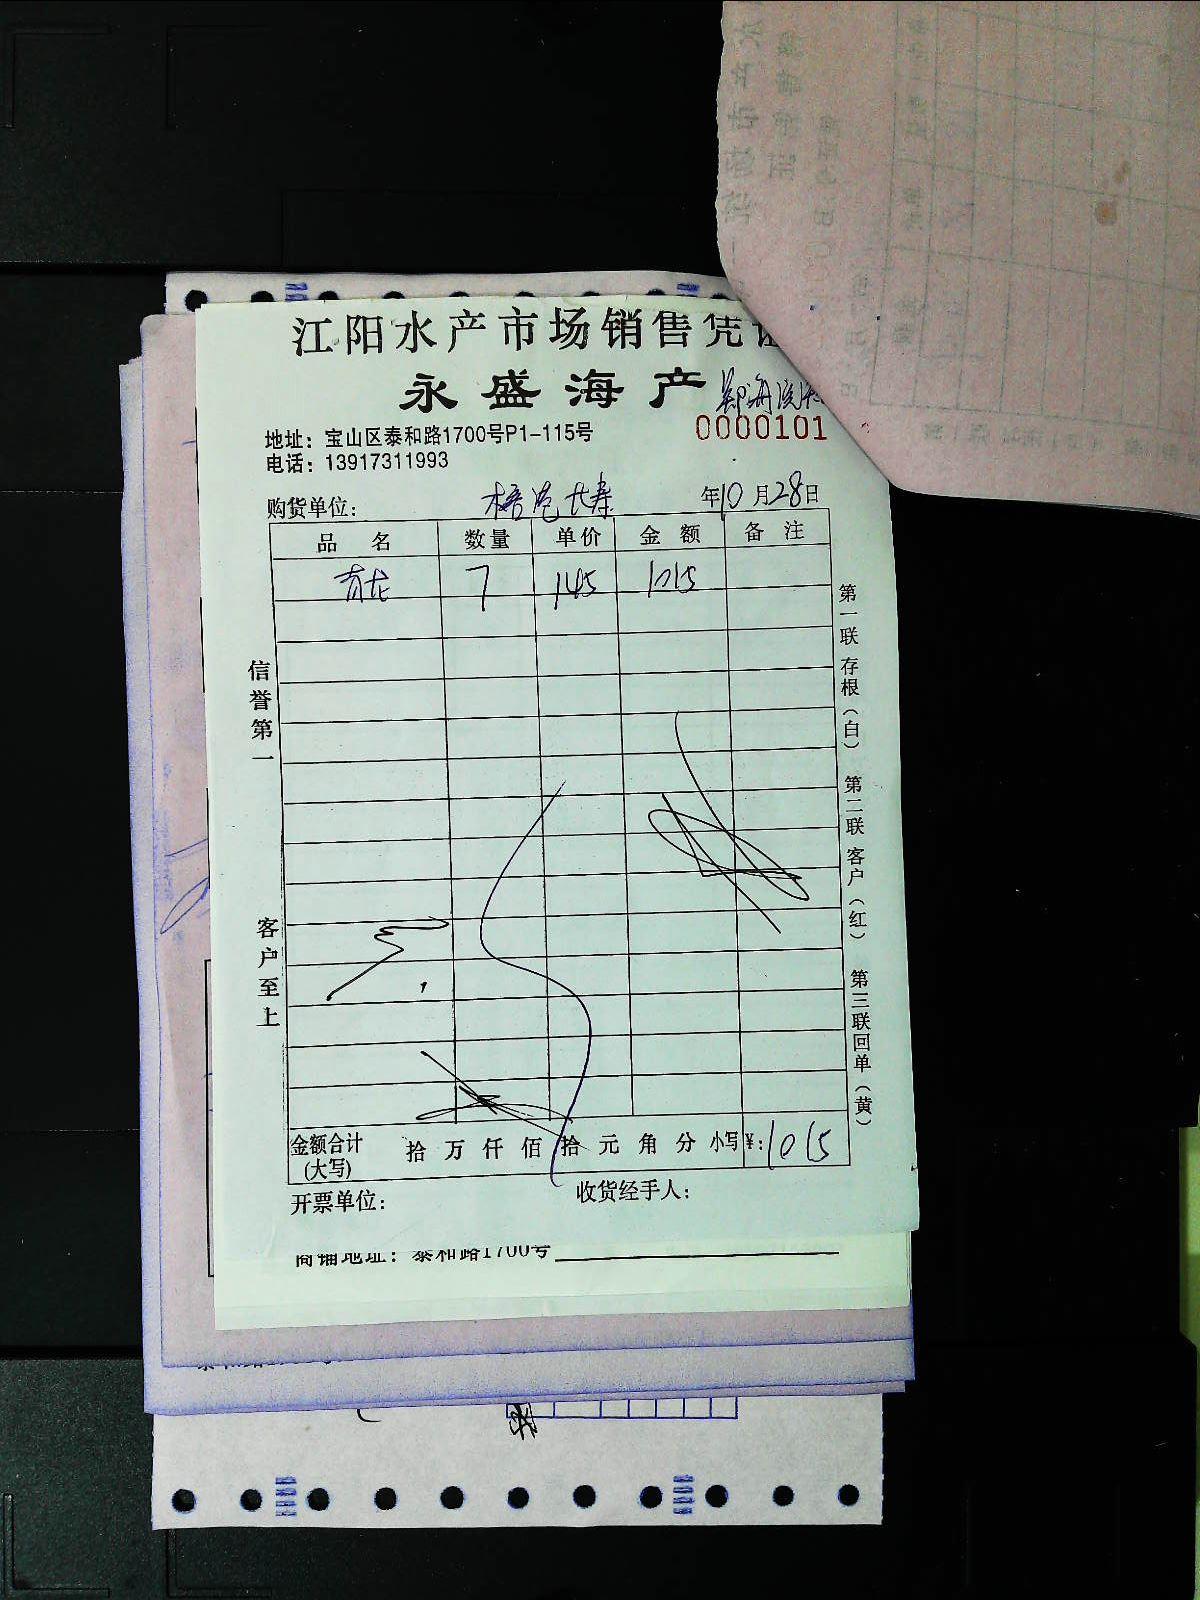 江阳水产市场销售凭
永盛海产
0000101
地址：宝山区泰和路1700号P1-115号
电话：13917311993
购货单位： 年10月28日
品名 数量 单价 金额 备注
青龙 7 145 1015
信誉第一
客户至上
第一联 存根（白） 第二联 客户（红） 第三联回单（黄）
金额合计（大写） 拾 万 仟 佰 拾 元 角 分 小写¥：1015
开票单位： 收货经手人：
商铺地址：泰和路1700号